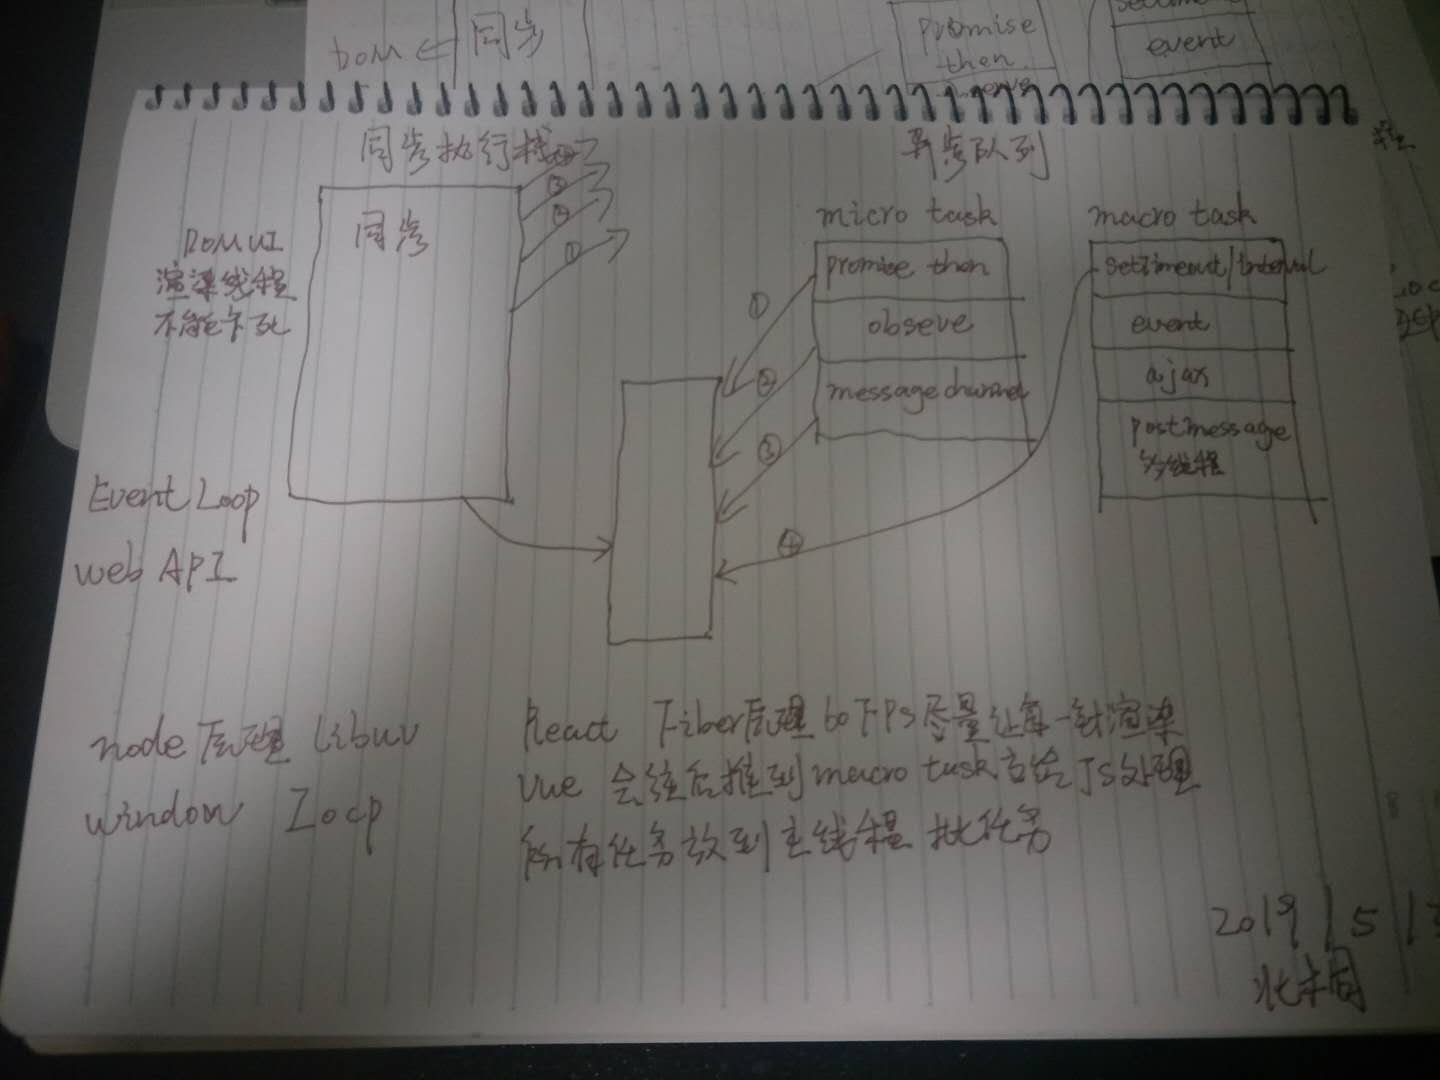 DOM ← 同步
promise
then
event
同步执行栈
异步队列
同步
DOM UI
渲染线程
不能卡死
① ② ③
micro task
promise then
obseve
message channel
macro task
setTimeout/Interval
event
ajax
postmessage
多线程
① ② ③ ④
Event Loop
web API
node 原理 Libuv
window Loop
React Fiber原理 60 FPS 尽量让每一针渲染
Vue 会往后推到 macro task 交给 JS处理
所有任务放到主线程 批任务
2019 / 5 /